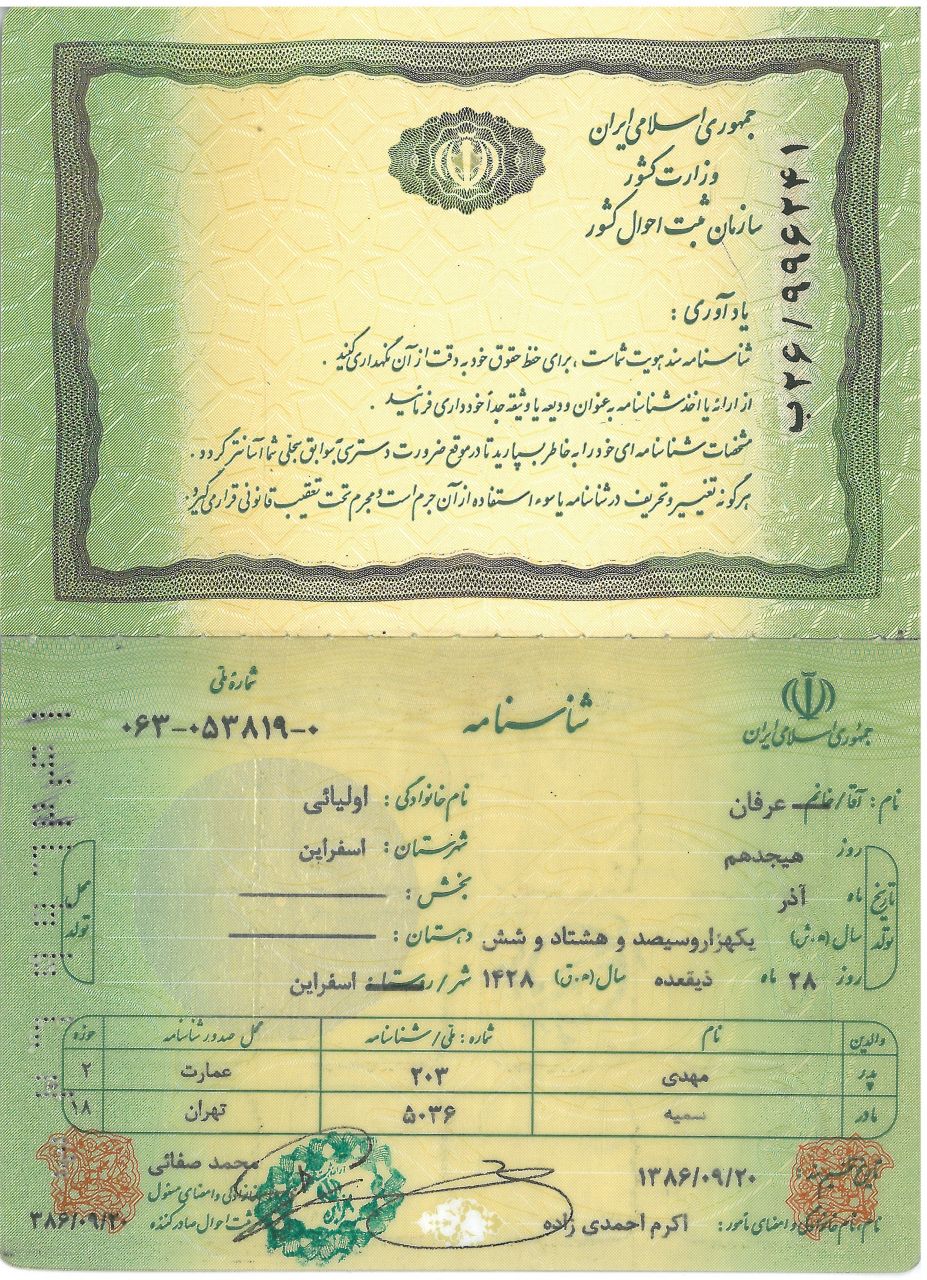 جمهوری اسلامی ایران
وزارت کشور
سازمان ثبت احوال کشور
ب۲۶/۹۹۶۲۴۱
یادآوری :
شناسنامه سند هویت شماست ، برای حفظ حقوق خود به دقت از آن نگهداری کنید .
از ارائه یا اخذ شناسنامه به عنوان ودیعه یا وثیقه جداً خودداری فرمائید .
مشخصات شناسنامه ای خود را به خاطر بسپارید تا در موقع ضرورت دسترسی به سوابق سجلی شما آسانتر گردد .
هرگونه تغییر و تحریف در شناسنامه یا سوء استفاده از آن جرم است و مجرم تحت تعقیب قانونی قرار می‌گیرد.
جمهوری اسلامی ایران
شناسنامه
شماره ملی
۰۶۳-۰۵۳۸۱۹-۰
نام : آقا/خانم عرفان نام خانوادگی : اولیائی
تاریخ تولد
روز هیجدهم شهرستان : اسفراین
ماه آذر بخش :
سال (ه.ش) یکهزاروسیصد و هشتاد و شش دهستان :
روز ۲۸ ماه ذیقعده سال (ه.ق) ۱۴۲۸ شهر/روستا: اسفراین
محل تولد
والدین نام شماره : ملی/شناسنامه محل صدور شناسنامه حوزه
پدر مهدی ۲۰۳ عمارت ۲
مادر سمیه ۵۰۳۶ تهران ۱۸
۱۳۸۶/۰۹/۲۰ محمد صفائی
نام، نام خانوادگی و امضای مأمور: اکرم احمدی زاده
نام خانوادگی و امضای مسئول
ثبت احوال صادرکننده
۳۸۶/۰۹/۲۰